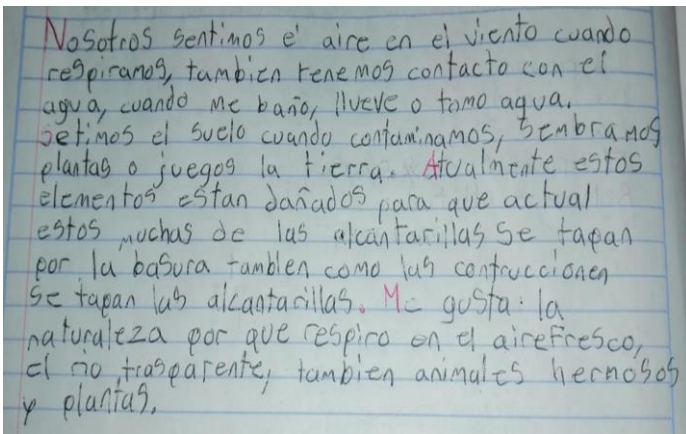 Nosotros sentimos el aire en el viento cuando
respiramos, tambien tenemos contacto con el
agua, cuando me baño, llueve o tomo agua.
Setimos el suelo cuando contaminamos, sembramos
plantas o juegos la tierra. Atualmente estos
elementos estan dañados para que actual
estos muchas de las alcantarillas se tapan
por la basura tambien como las contrucciones
se tapan las alcantarillas. Me gusta. la
naturaleza por que respiro en el airefresco,
el rio trasparente, tambien animales hermosos
y plantas.